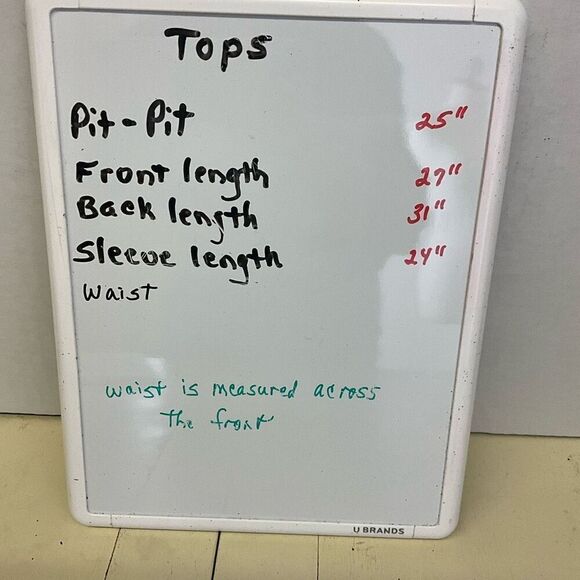 Tops
Pit-Pit 25"
Front length 27"
Back length 31"
Sleeve length 24"
Waist
waist is measured across
the front
U BRANDS